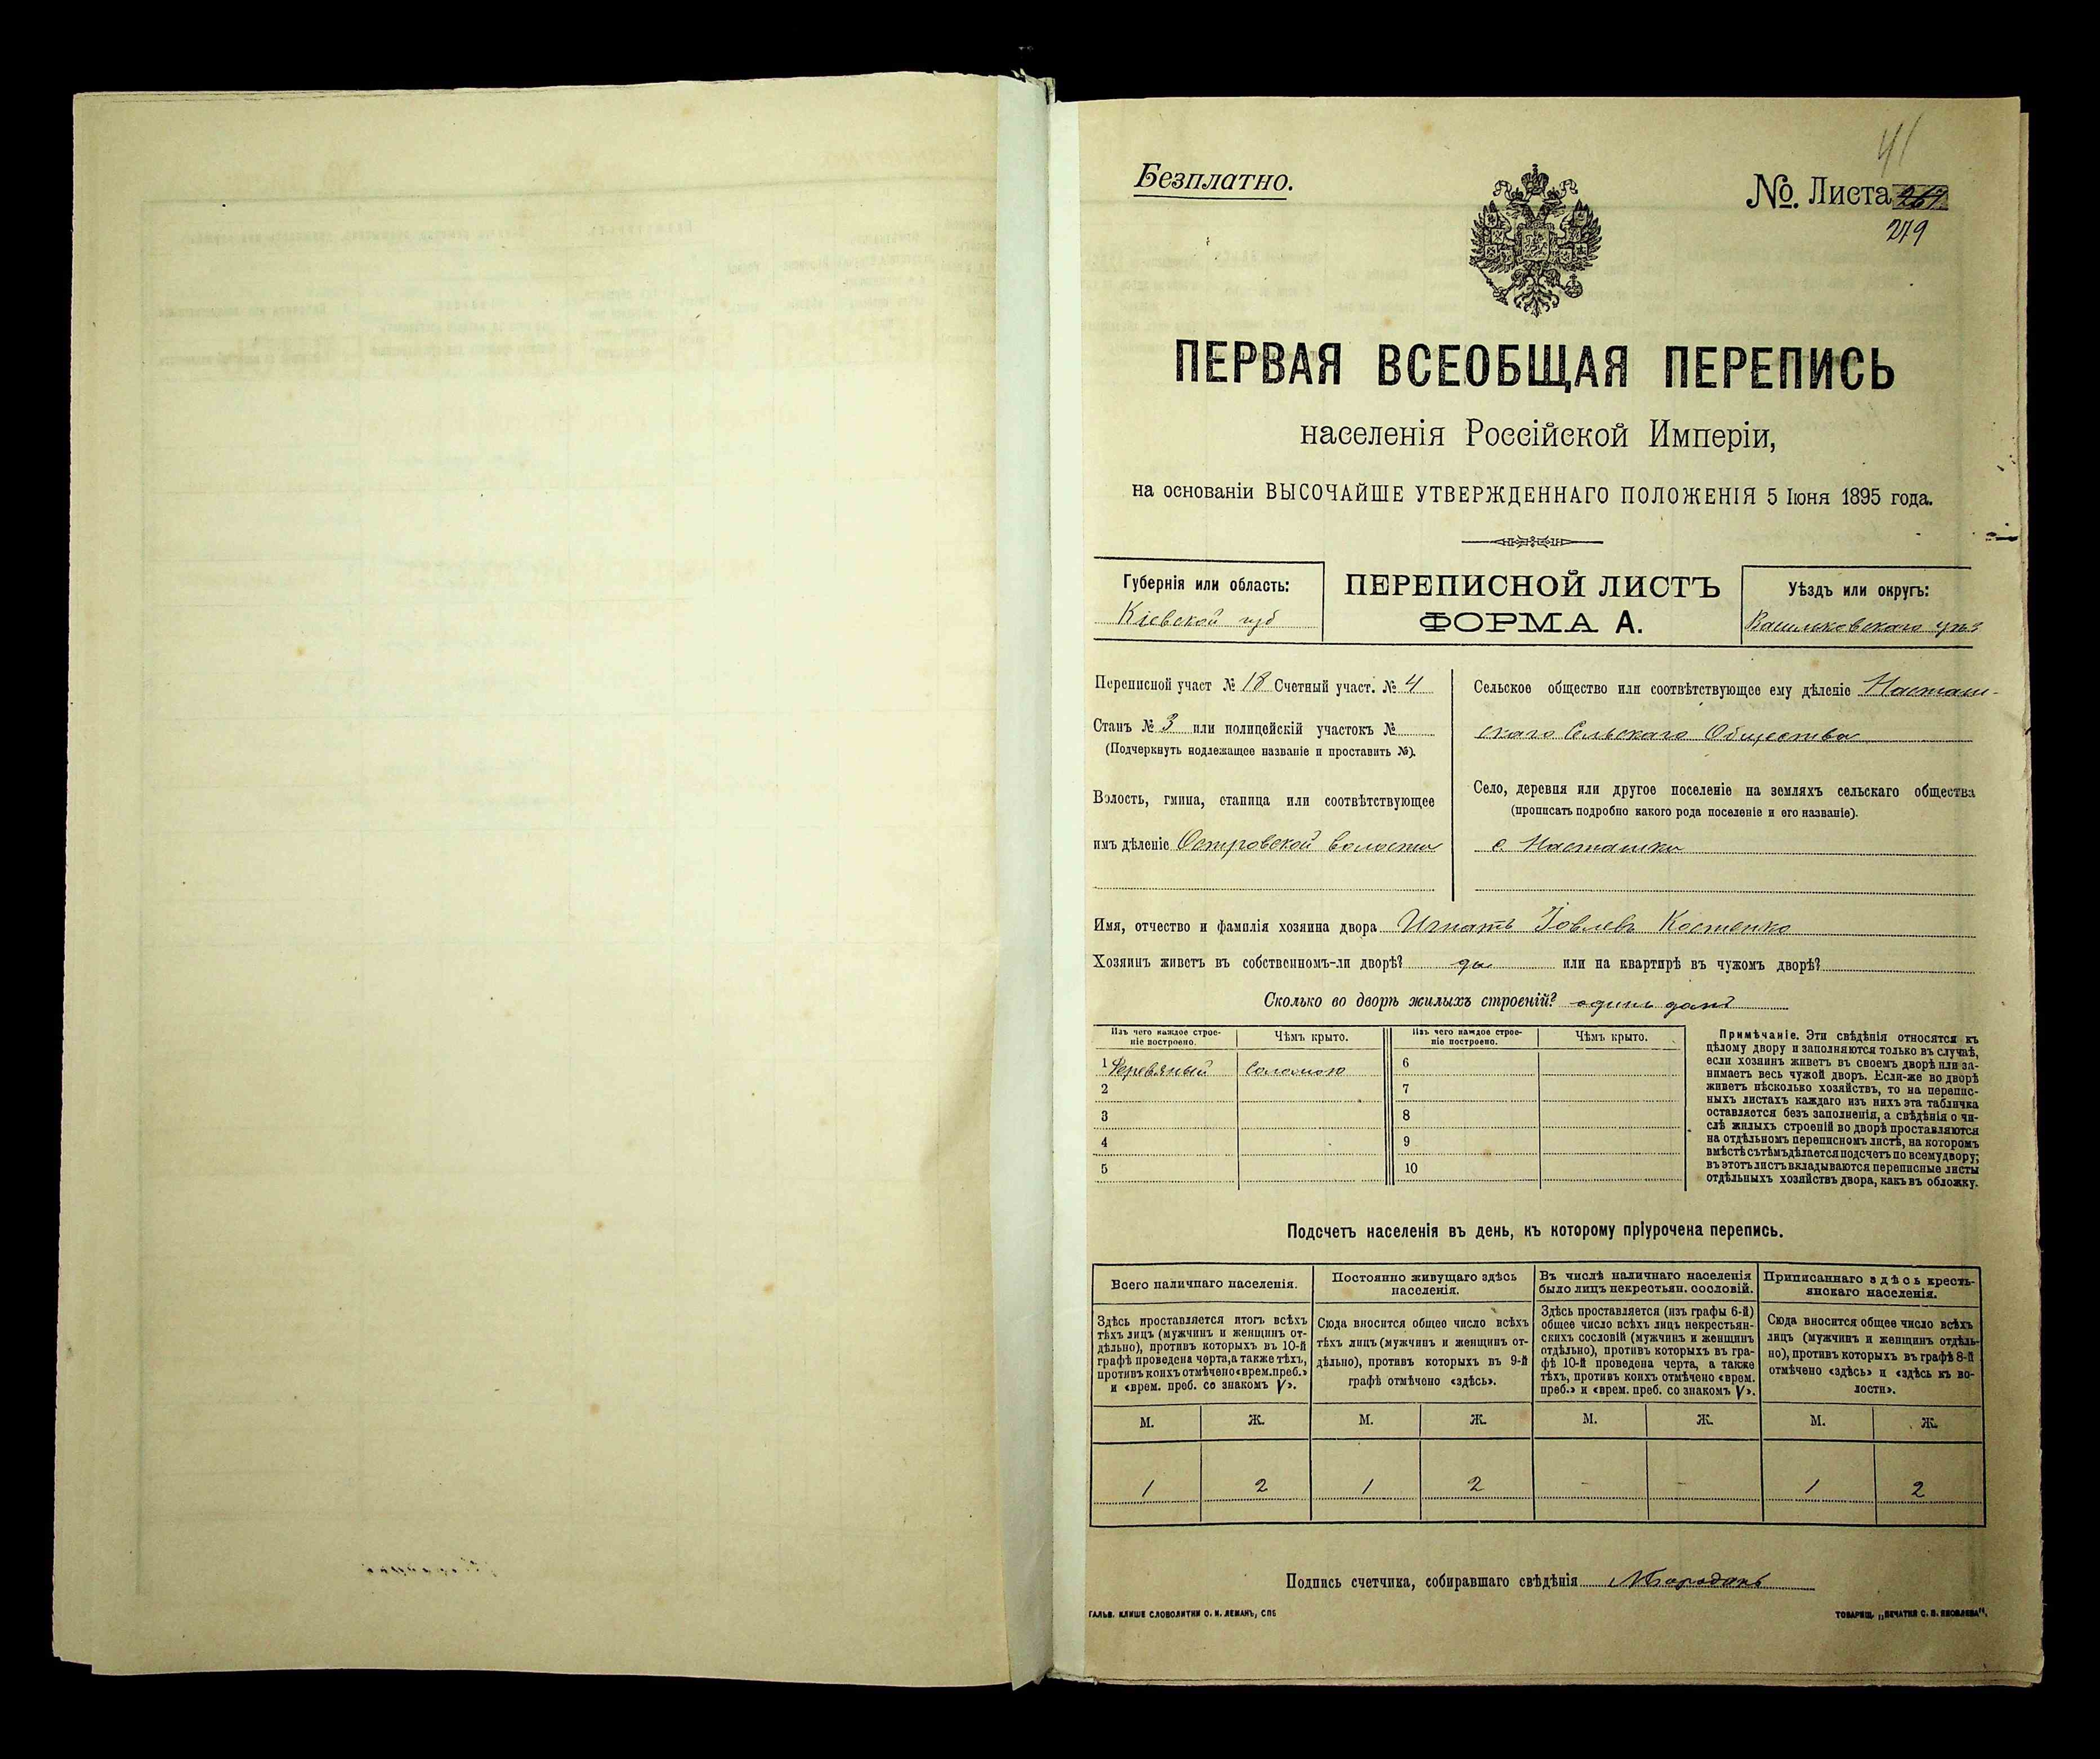 41
Безплатно.
№. Листа 267
279
ПЕРВАЯ ВСЕОБЩАЯ ПЕРЕПИСЬ
населенія Россійской Имперіи,
на основаніи ВЫСОЧАЙШЕ УТВЕРЖДЕННАГО ПОЛОЖЕНІЯ 5 Іюня 1895 года.
Губернія или область:
Кіевской губ
ПЕРЕПИСНОЙ ЛИСТЪ
ФОРМА А.
Уѣздъ или округъ:
Васильковскаго уѣз
Переписной участ № 18 Счетный участ. № 4
Станъ № 3 или полицейскій участокъ №
(Подчеркнуть подлежащее названіе и проставить №).
Волость, гмина, станица или соотвѣтствующее
имъ дѣленіе Островской волости
Сельское общество или соотвѣтствующее ему дѣленіе Насташ-
скаго Сельскаго Общества
Село, деревня или другое поселеніе на земляхъ сельскаго общества
(прописать подробно какого рода поселеніе и его названіе).
с. Насташки
Имя, отчество и фамилія хозяина двора Игнатъ Іовлевъ Костенко
Хозяинъ живетъ въ собственномъ-ли дворѣ? да или на квартирѣ въ чужомъ дворѣ?
Сколько во дворѣ жилыхъ строеній? одинъ домъ
Изъ чего каждое строе-
ніе построено.
Чѣмъ крыто.
Изъ чего каждое строе-
ніе построено.
Чѣмъ крыто.
1 Деревяный Соломою 6
2 7
3 8
4 9
5 10
Примѣчаніе. Эти свѣдѣнія относятся къ
цѣлому двору и заполняются только въ случаѣ,
если хозяинъ живетъ въ своемъ дворѣ или за-
нимаетъ весь чужой дворъ. Если-же во дворѣ
живетъ нѣсколько хозяйствъ, то на перепис-
ныхъ листахъ каждаго изъ нихъ эта табличка
оставляется безъ заполненія, а свѣдѣнія о чи-
слѣ жилыхъ строеній во дворѣ проставляются
на отдѣльномъ переписномъ листѣ, на которомъ
вмѣстѣ съ тѣмъ дѣлается подсчетъ по всему двору;
въ этотъ листъ вкладываются переписные листы
отдѣльныхъ хозяйствъ двора, какъ въ обложку.
Подсчетъ населенія въ день, къ которому пріурочена перепись.
Всего наличнаго населенія.
Постоянно живущаго здѣсь
населенія.
Въ числѣ наличнаго населенія
было лицъ некрестьян. сословій.
Приписаннаго здѣсь кресть-
янскаго населенія.
Здѣсь проставляется итогъ всѣхъ
тѣхъ лицъ (мужчинъ и женщинъ от-
дѣльно), противъ которыхъ въ 10-й
графѣ проведена черта, а также тѣхъ,
противъ коихъ отмѣчено «врем. преб.»
и «врем. преб. со знакомъ V».
Сюда вносится общее число всѣхъ
тѣхъ лицъ (мужчинъ и женщинъ от-
дѣльно), противъ которыхъ въ 9-й
графѣ отмѣчено «здѣсь».
Здѣсь проставляется (изъ графы 6-й)
общее число всѣхъ лицъ некрестьян-
скихъ сословій (мужчинъ и женщинъ
отдѣльно), противъ которыхъ въ гра-
фѣ 10-й проведена черта, а также
тѣхъ, противъ коихъ отмѣчено «врем.
преб.» и «врем. преб. со знакомъ V».
Сюда вносится общее число всѣхъ
лицъ (мужчинъ и женщинъ отдѣль-
но), противъ которыхъ въ графѣ 8-й
отмѣчено «здѣсь» и «здѣсь къ во-
лости».
М. Ж. М. Ж. М. Ж. М. Ж.
1 2 1 2 - - 1 2
Подпись счетчика, собиравшаго свѣдѣнія
ГАЛЬВ. КЛИШЕ СЛОВОЛИТНИ О. И. ЛЕМАНЪ, СПБ
ТОВАРИЩ. „ПЕЧАТНЯ С. П. ЯКОВЛЕВА".